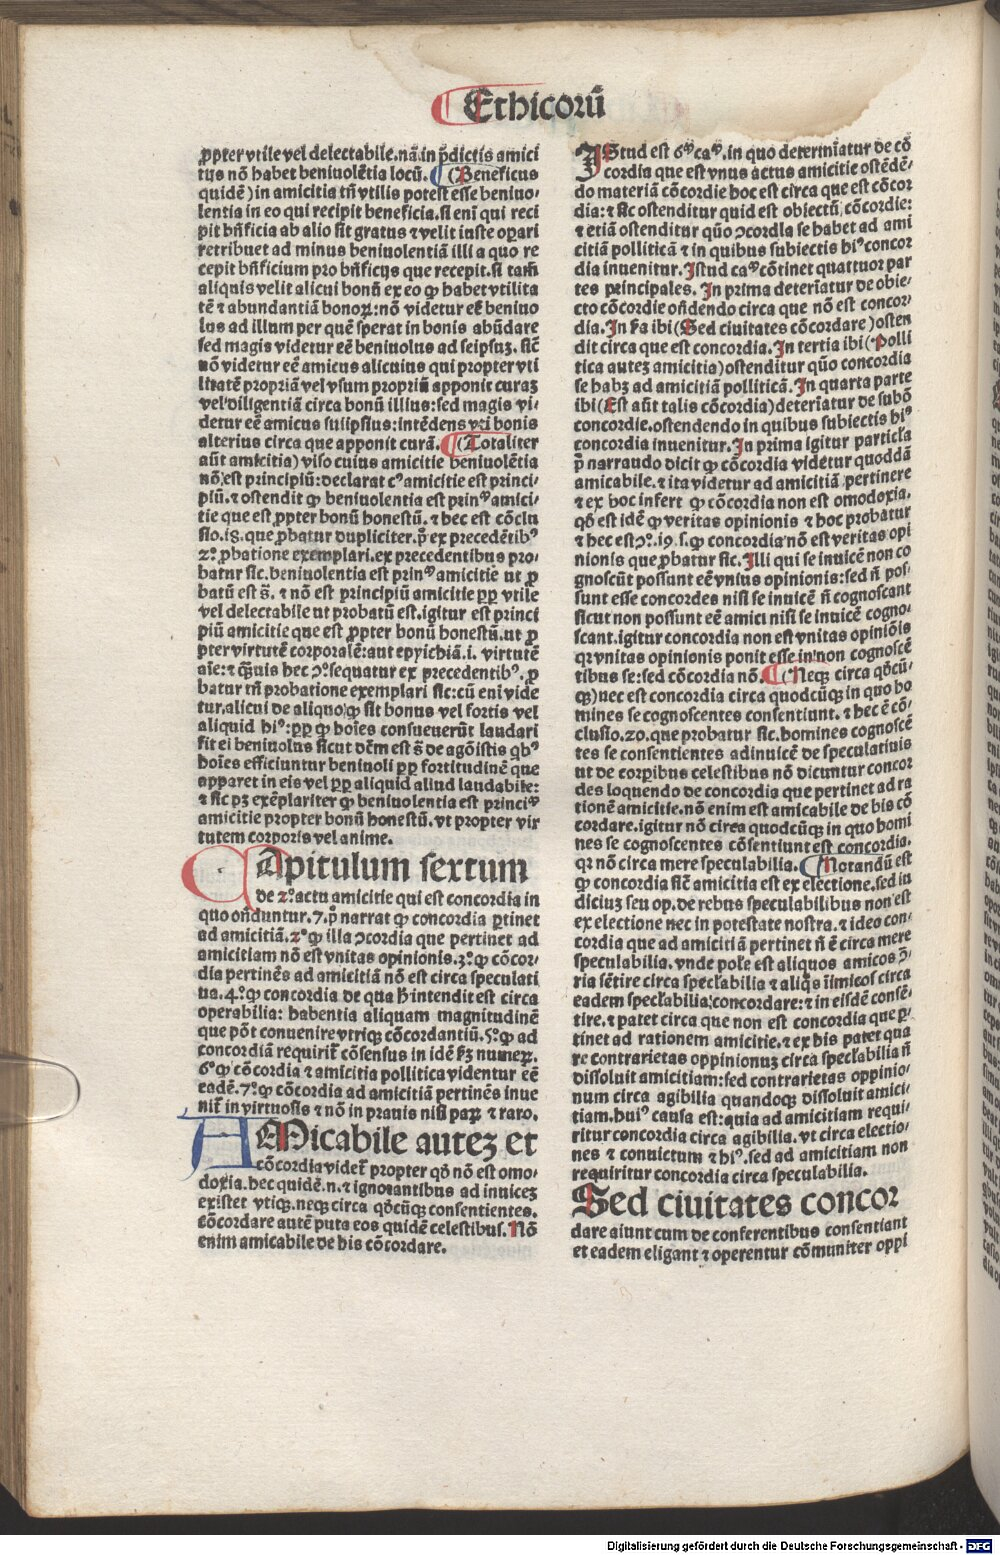 Ethicorū
ꝓpter vtile vel delectabile.nā.in p̄dictis amici
tijs nō habet beniuolētia locū. (Beneficus
quidē) in amicitia tn̄ vtilis potest esse beniuo-
lentia in eo qui recipit beneficia.si eni qui reci
pit bn̄ficia ab alio sit gratus ⁊ velit iuste oꝑari
retribuet ad minus beniuolentiā illi a quo re
cepit bn̄ficium pro bn̄ficijs que recepit.si tam̄
aliquis velit alicui bonū ex eo ꝙ habet vtilita
tē ⁊ abundantiā bonoꝝ:nō videtur eē beniuo
lus ad illum per quē sperat in bonis abūdare
sed magis videtur eē beniuolus ad seipsuꝫ. sic̄
nō videtur eē amicus alicuius qui propter vti
litatē propriā vel vsum propriū apponit curaꝫ
vel diligentiā circa bonū illius:sed magis vi-
detur eē amicus suiipsius:intēdens vti bonis
alterius circa que apponit curā. (Totaliter
aūt amicitia) viso cuius amicitie beniuolētia
nō est principiū:declarat cꝰ amicitie est princi-
piū.⁊ ostendit ꝙ beniuolentia est prinᵐ amici-
tie que est ꝓpter bonū honestū.⁊ hec est cōclu
sio.i8.que ꝓbatur dupliciter.p̄ ex precedētibꝰ
2º.ꝓbatione exemplari.ex precedentibus pro-
batur sic.beniuolentia est prinᵐ amicitie ut ꝓ
batū est s̄. ⁊ nō est principiū amicitie ꝓꝑ vtile
vel delectabile ut probatū est.igitur est princi
piū amicitie que est ꝓpter bonū honestū.ut ꝓ
pter virtutē corporalē:aut epyichiā.i. virtutē
aīe:⁊ ꝙuis hec ꝯº sequatur ex precedentibꝰ.ꝓ
batur tn̄ probatione exemplari sic:cū eni vide
tur.alicui de aliquo ꝙ sit bonus vel fortis vel
aliquid hiꝰ:ꝓꝑ ꝙ hoīes consueuerūt laudari
fit ei beniuolus sicut dc̄m est s̄ de agōistis qbꝰ
hoīes efficiuntur beniuoli ꝓꝑ fortitudinē que
apparet in eis vel ꝓꝑ aliquid aliud laudabile:
⁊ sic pꝫ exēplariter ꝙ beniuolentia est princiᵐ
amicitie propter bonū honestū.vt propter vir
tutem corporis vel anime.
CApitulum sextum
de 2º.actu amicitie qui est concordia in
quo ondūntur.7.p̄ narrat ꝙ concordia ꝑtinet
ad amicitiā.2º ꝙ illa ꝯcordia que pertinet ad
amicitiam nō est vnitas opinionis.3º.ꝙ cōcor-
dia pertinēs ad amicitiā nō est circa speculati
ua.4º.ꝙ concordia de qua h̄ intendit est circa
operabilia: habentia aliquam magnitudinē
que pōt conuenire vtriqꝫ cōcordantiū.5º.ꝙ ad
concordiā requirit̄ cōsensus in idē ẜm numeꝝ.
6º ꝙ cōcordia ⁊ amicitia pollitica videntur eē
eadē.7º.ꝙ cōcordia ad amicitiā pertinēs inue
nit̄ in virtuosis ⁊ nō in prauis nisi paꝝ ⁊ raro.
AMicabile auteꝫ et
cōcordia videt̄ propter qd̄ nō est omo-
doxia.hec quidē.n.⁊ ignorantibus ad inuiceꝫ
existet vtiqꝫ.neqꝫ circa qd̄cūqꝫ consentientes.
cōcordare autē puta eos quidē celestibus.Nō
enim amicabile de his cōcordare.
IStud est 6ᵐ caᵐ.in quo determīatur de cō
cordia que est vnus actus amicitie ostēdē-
do materiā cōcordie hoc est circa que est cōcor
dia:⁊ sic ostenditur quid est obiectū cōcordie:
⁊ etiā ostenditur quō ꝯcordia se habet ad ami
citiā polliticā ⁊ in quibus subiectis hiꝰ concor
dia inuenitur.Istud caᵐ cōtinet quattuor par
tes principales. In prima deteriatur de obie-
cto cōcordie on̄dendo circa que nō est concor-
dia.In ẜa ibi (Sed ciuitates cōcordare) osten
dit circa que est concordia.In tertia ibi (Polli
tica auteꝫ amicitia) ostenditur quō concordia
se habꝫ ad amicitiā polliticā.In quarta parte
ibi (Est aūt talis cōcordia) deteriatur de subō
concordie.ostendendo in quibus subiectis hiꝰ
concordia inuenitur.In prima igitur particl̄a
p̄ narrando dicit ꝙ cōcordia videtur quoddā
amicabile.⁊ ita videtur ad amicitiā pertinere
⁊ ex hoc infert ꝙ cōcordia non est omodoxia.
qd̄ est idē ꝙ veritas opinionis ⁊ hoc probatur
⁊ hec est ꝯº.i9.s.ꝙ concordia nō est veritas opi
nionis que ꝓbatur sic.Illi qui se inuicē non co
gnoscūt possunt eē vnius opinionis:sed n̄ pos-
sunt esse concordes nisi se inuicē n̄ cognoscant
sicut non possunt eē amici nisi se inuicē cogno-
scant.igitur concordia non est vnitas opiniōis
qꝛ vnitas opinionis ponit esse in non cognoscē
tibus se:sed cōcordia nō. (Neqꝫ circa qd̄cū-
qꝫ) nec est concordia circa quodcūqꝫ in quo ho
mines se cognoscentes consentiunt.⁊ hec ē cō-
clusio.20.que probatur sic.homines cognoscē
tes se consentientes adinuicē de speculatiuis
ut de corꝑibus celestibus nō dicuntur concor
des loquendo de concordia que pertinet ad ra
tionē amicitie.nō enim est amicabile de his cō
cordare.igitur nō circa quodcūqꝫ in quo homi
nes se cognoscentes cōsentiunt est concordia.
qꝛ nō circa mere speculabilia. Notandū est
ꝙ concordia sic̄ amicitia est ex electione.sed iu
diciuꝫ seu op.de rebus speculabilibus non est
ex electione nec in potestate nostra.⁊ ideo con-
cordia que ad amicitiam pertinet n̄ ē circa mere
speculabilia.vnde pole est aliquos amicos ꝯ-
ria sētire circa specl̄abilia ⁊ aliqs̄ īimicos circa
eadem specl̄abilia concordare:⁊ in eisdē consē-
tire.⁊ patet circa que non est concordia que ꝑ-
tinet ad rationem amicitie.⁊ ex his patet qua
re contrarietas oppinionuꝫ circa specl̄abilia n̄
dissoluit amicitiam:sed contrarietas oppinio-
num circa agibilia quandoqꝫ dissoluit amici-
tiam.huiꝰ causa est:quia ad amicitiam requi-
ritur concordia circa agibilia.vt circa electio-
nes ⁊ conuictum ⁊ hiꝰ.sed ad amicitiam non
requiritur concordia circa speculabilia.
Sed ciuitates concor
dare aiunt cum de conferentibus consentiant
et eadem eligant ⁊ operentur cōmuniter oppi
Digitalisierung gefördert durch die Deutsche Forschungsgemeinschaft - DFG